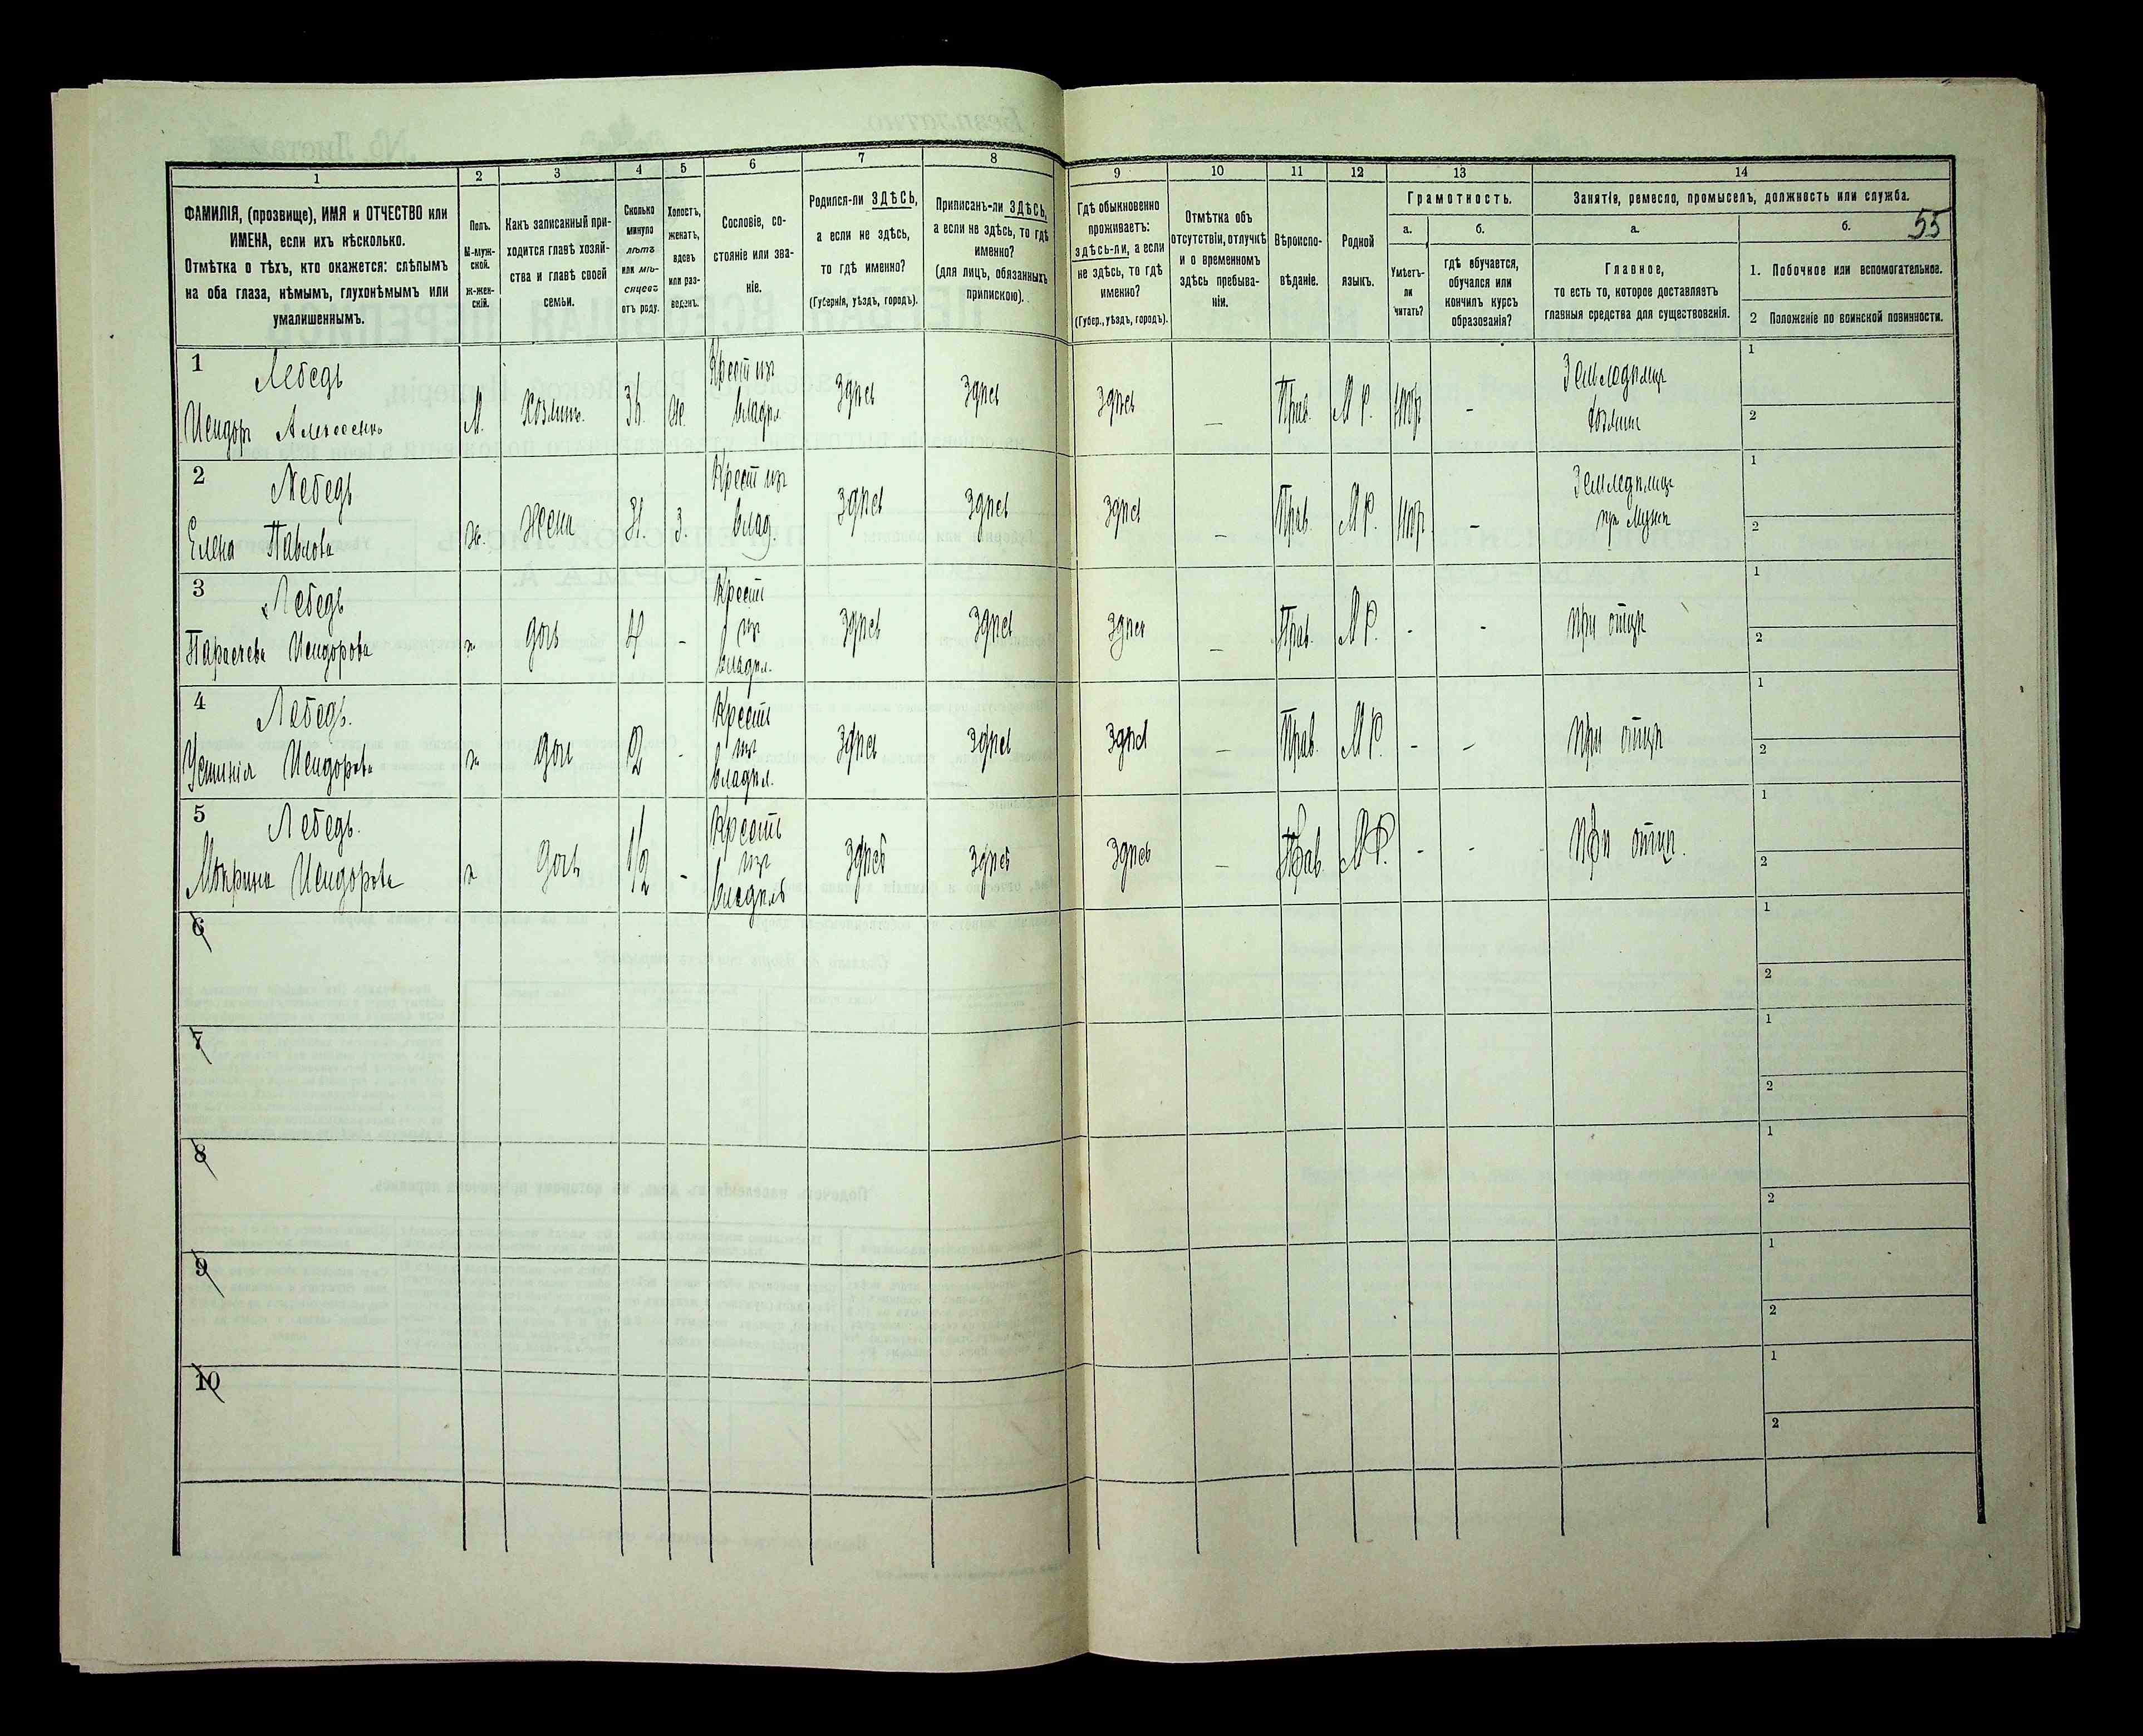 55
1 2 3 4 5 6 7 8 9 10 11 12 13 14
ФАМИЛІЯ, (прозвище), ИМЯ и ОТЧЕСТВО или
ИМЕНА, если ихъ нѣсколько.
Отмѣтка о тѣхъ, кто окажется: слѣпымъ
на оба глаза, нѣмымъ, глухонѣмымъ или
умалишеннымъ.
Полъ.
М-муж-
ской.
Ж-жен-
скій.
Какъ записанный при-
ходится главѣ хозяй-
ства и главѣ своей
семьи.
Сколько
минуло
лѣтъ
или мѣ-
сяцевъ
отъ роду.
Холостъ,
женатъ,
вдовъ
или раз-
веденъ.
Сословіе, со-
стояніе или зва-
ніе.
Родился-ли ЗДѢСЬ,
а если не здѣсь,
то гдѣ именно?
(Губернія, уѣздъ, городъ).
Приписанъ-ли ЗДѢСЬ,
а если не здѣсь, то гдѣ
именно?
(для лицъ, обязанныхъ
припискою).
Гдѣ обыкновенно
проживаетъ:
здѣсь-ли, а если
не здѣсь, то гдѣ
именно?
(Губер., уѣздъ, городъ).
Отмѣтка объ
отсутствіи, отлучкѣ
и о временномъ
здѣсь пребыва-
ніи.
Вѣроиспо-
вѣданіе.
Родной
языкъ.
Грамотность.
а.
Умѣетъ-
ли
читать?
б.
гдѣ обучается,
обучался или
кончилъ курсъ
образованія?
Занятіе, ремесло, промыселъ, должность или служба.
а.
Главное,
то есть то, которое доставляетъ
главныя средства для существованія.
б.
1. Побочное или вспомогательное.
2 Положеніе по воинской повинности.
1 Лебедь Крест изъ Земледѣлецъ 1
М. хозяинъ Ж. владѣл. Здѣсь Здѣсь Здѣсь — Прав. М Р. нѣтъ - хозяинъ 2
2 Лебедь Крест изъ Земледѣлица 1
Елена Павлова ж. жена 31. З. влад. Здѣсь Здѣсь Здѣсь — Прав. М Р. нѣтъ - при мужѣ 2
3 Лебедь Крест 1
Параскева Исидорова ж дочь 4 - изъ владѣл. Здѣсь Здѣсь Здѣсь — Прав. М Р. - - при отцѣ 2
4 Лебедь. Крестъ 1
Устинія Исидорова ж дочь 2 - изъ владѣл. Здѣсь Здѣсь Здѣсь — Прав. М Р. - - при отцѣ 2
5 Лебедь. Крестъ 1
Исидорова ж дочь 1/2 - изъ владѣлъ Здѣсь Здѣсь Здѣсь — Прав. М Р. - - при отцѣ. 2
6 1
2
7 1
2
8 1
2
9 1
2
10 1
2